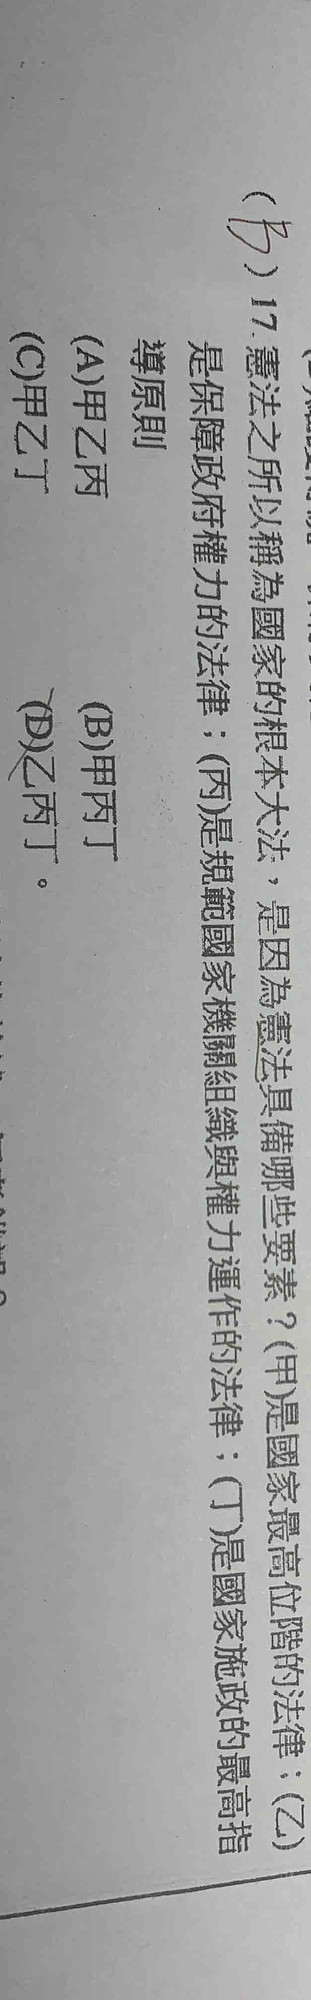 (B) 17.憲法之所以稱為國家的根本大法，是因為憲法具備哪些要素？(甲)是國家最高位階的法律；(乙)
是保障政府權力的法律；(丙)是規範國家機關組織與權力運作的法律；(丁)是國家施政的最高指
導原則
(A)甲乙丙 (B)甲丙丁
(C)甲乙丁 (D)乙丙丁。